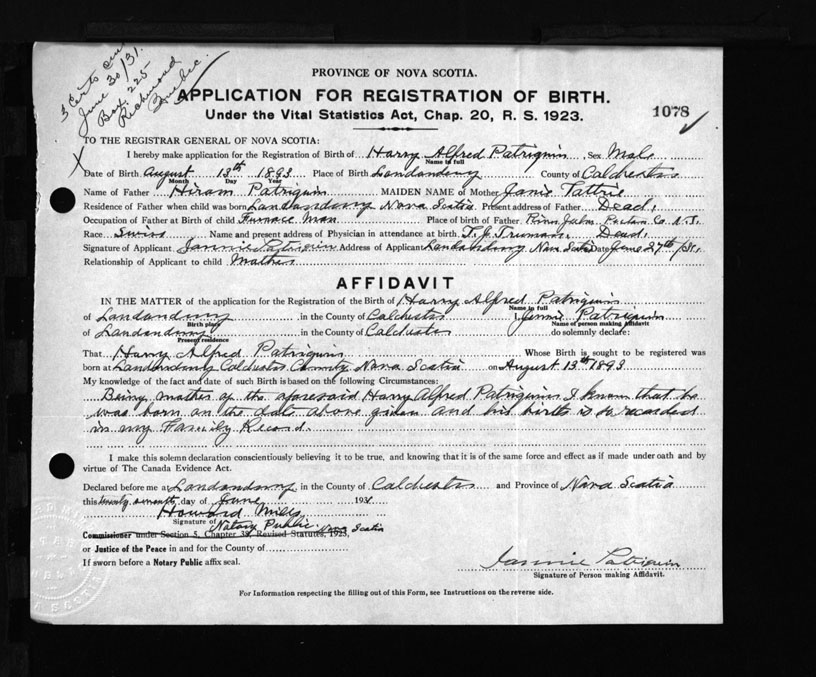 3 Certs
June 30/31.
Box 225-
Richmond
Quebec.
PROVINCE OF NOVA SCOTIA.
APPLICATION FOR REGISTRATION OF BIRTH.
1078
Under the Vital Statistics Act, Chap. 20, R. S. 1923.
TO THE REGISTRAR GENERAL OF NOVA SCOTIA:
I hereby make application for the Registration of Birth of Harry Alfred Patriquin Sex Male
Name in full
Date of Birth August 13th 1893 Place of Birth Londonderry County of Colchester
Month Day Year
Name of Father Hiram Patriquin MAIDEN NAME of Mother Janie Tattrie
Residence of Father when child was born Londonderry Nova Scotia Present address of Father Dead.
Occupation of Father at Birth of child Furnace Man Place of birth of Father River John. Pictou Co. N.S.
Race Swiss Name and present address of Physician in attendance at birth. T. J. Truman. Dead.
Signature of Applicant Jannie Patriquin Address of Applicant Londonderry Nova Scotia Date June 27th/31.
Relationship of Applicant to child Mother
AFFIDAVIT
IN THE MATTER of the application for the Registration of the Birth of Harry Alfred Patriquin
Name in full
of Londonderry in the County of Colchester I, Jennie Patriquin
Birth place Name of person making Affidavit
of Londonderry in the County of Colchester do solemnly declare:
Present residence
That Harry Alfred Patriquin Whose Birth is sought to be registered was
born at Londonderry Colchester County, Nova Scotia on August 13th 1893
My knowledge of the fact and date of such Birth is based on the following Circumstances:
Being mother of the aforesaid Harry Alfred Patriquin I know that he
was born on the date above given and his birth is so recorded
in my Family Record.
I make this solemn declaration conscientiously believing it to be true, and knowing that it is of the same force and effect as if made under oath and by
virtue of The Canada Evidence Act.
Declared before me at Londonderry in the County of Colchester and Province of Nova Scotia
this twenty seventh day of June 1931
Howard Mills
Signature of
Notary Public. Nova Scotia
Commissioner under Section 5, Chapter 38, Revised Statutes, 1923,
or Justice of the Peace in and for the County of
If sworn before a Notary Public affix seal.
Jannie Patriquin
Signature of Person making Affidavit.
For Information respecting the filling out of this Form, see Instructions on the reverse side.